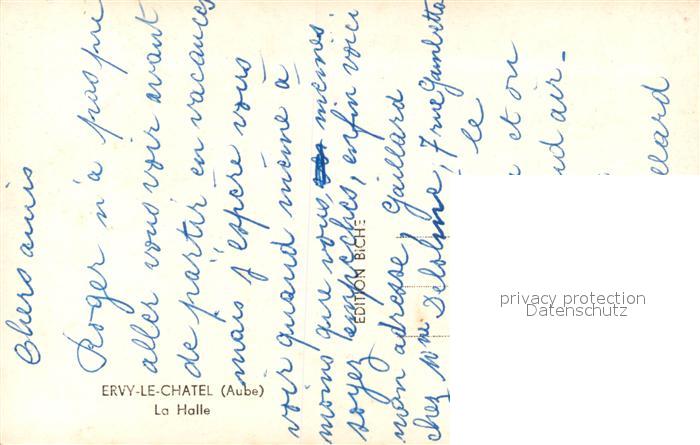 Chers amis
Roger n'a pas pu
aller vous voir avant
de partir en vacances
mais j'espère vous
voir quand même à
moins que vous, mêmes
soyez empêchés, enfin voici
mon adresse, Gaillard
chez Mme Delolme, 7 rue Gambetta
le
et on
air.
ERVY-LE-CHATEL (Aube)
La Halle
EDITION BICHE
privacy protection
Datenschutz